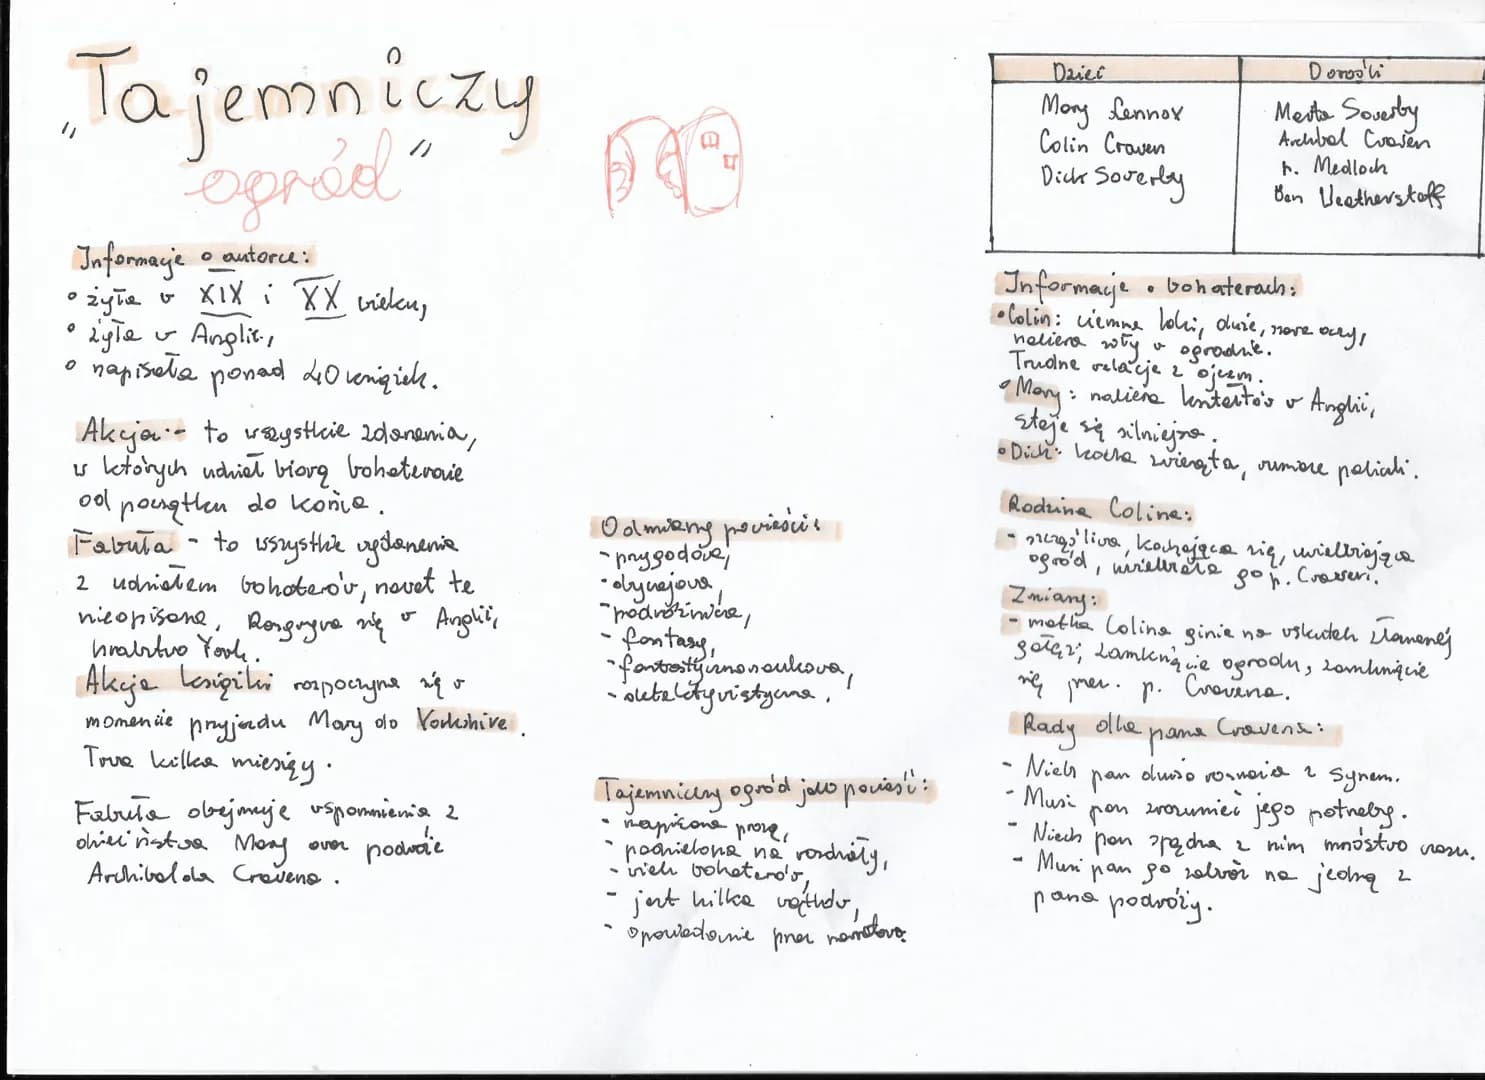 „Tajemniczy
ogród”
Informacje o autorce:
• żyła w XIX i XX wieku,
• żyła w Anglii,
• napisała ponad 40 książek.
Akcja - to wszystkie zdarzenia,
w których udział biorą bohaterowie
od początku do końca.
Fabuła - to wszystkie wydarzenia
z udziałem bohaterów, nawet te
nieopisane, Rozgrywa się w Anglii,
hrabstwo York.
Akcja książki rozpoczyna się w
momencie przyjazdu Mary do Yorkshire.
Trwa kilka miesięcy.
Fabuła obejmuje wspomnienia z
dzieciństwa Mary oraz podróże
Archibalda Cravena.
Odmiany powieści:
- przygodowa,
- obyczajowa,
- podróżnicza,
- fantasy,
- fantastycznonaukowa,
- detektywistyczna.
Tajemniczy ogród jako powieść:
- napisana prozą,
- podzielona na rozdziały,
- wiele bohaterów,
- jest kilka wątków,
- opowiadanie przez narratora.
Dzieci Dorośli
Mary Lennox Marta Soverby
Colin Craven Archibal Craven
Dick Soverby p. Medloch
Ben Weatherstaff
Informacje o bohaterach:
• Colin: ciemne loki, duże, szare oczy,
nabiera siły w ogrodzie.
Trudne relacje z ojcem.
• Mary: nabiera kształtów w Anglii,
staje się silniejsza.
• Dick: kocha zwierzęta, rumiane policzki.
Rodzina Colina:
- szczęśliwa, kochająca się, uwielbiająca
ogród, uwielbiała go p. Craven.
Zmiany:
- matka Colina ginie na skutek złamanej
gałęzi, zamknięcie ogrodu, zamknięcie
się przez p. Cravena.
Rady dla pana Cravena:
- Niech pan dużo rozmawia z synem.
- Musi pan zrozumieć jego potrzeby.
- Niech pan spędza z nim mnóstwo czasu.
- Musi pan go zabrać na jedną z
pana podróży.